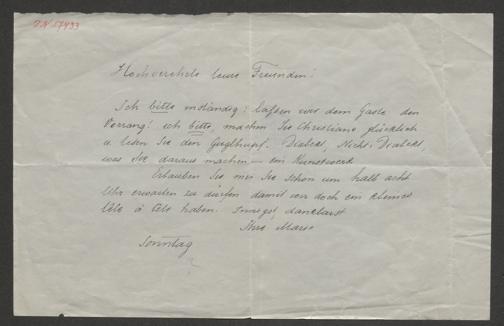 Hochverehrte teure Freundin!
Ich bitte inständig! laßen wir dem Gaste den
Vorrang! ich bitte, machen Sie Christiane glücklich
u. leben Sie den Guglhupf. Diabext, Nicht-Diabext,
was Sie daraus machen – ein Kunstwerk
Erlauben Sie mir Sie schon um halb acht
Uhr erwarten zu dürfen damit wir doch ein kleines
tête à tête haben. Innigst, dankbarst
Ihre Marie
Sonntag